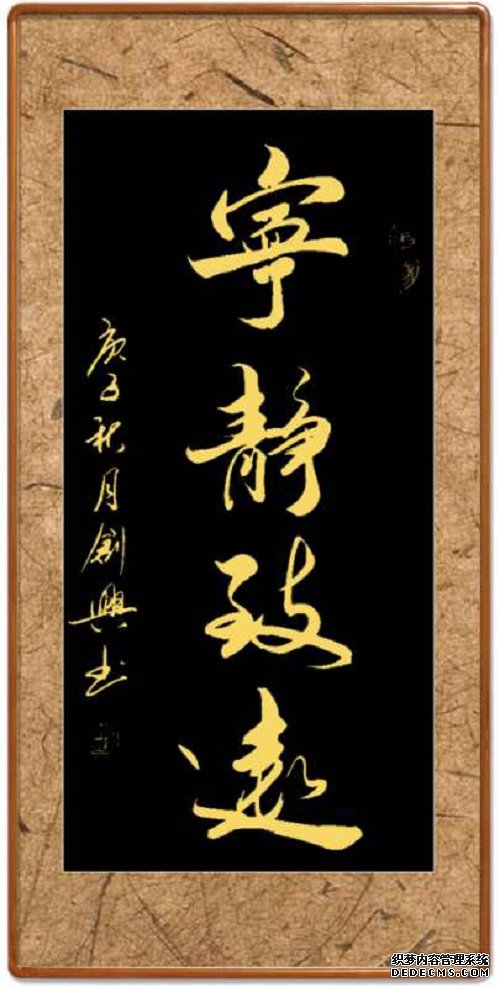 寧靜致遠
庚子秋月創興書
织梦内容管理系统
DEDECMS.COM